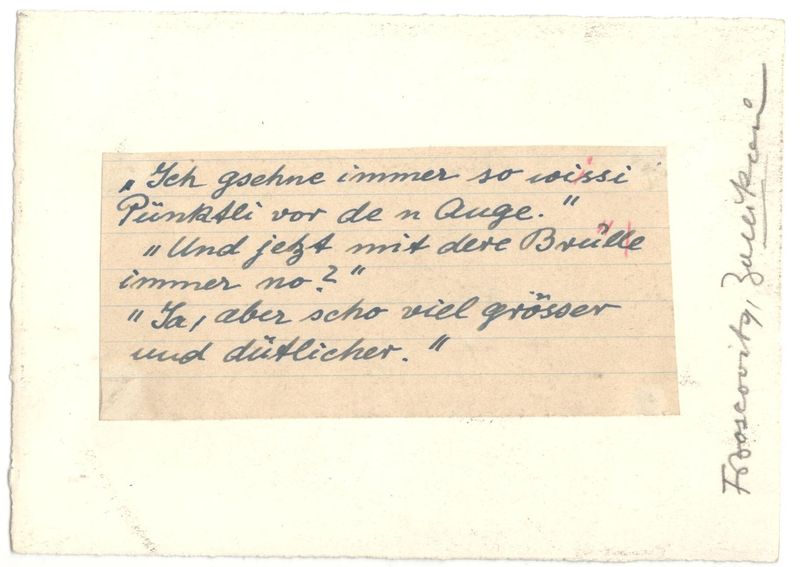 „Ich gsehne immer so wissi
Pünktli vor de n Auge."
"Und jetzt mit dere Brülle
immer no?"
"Ja, aber scho viel grösser
und dütlicher."